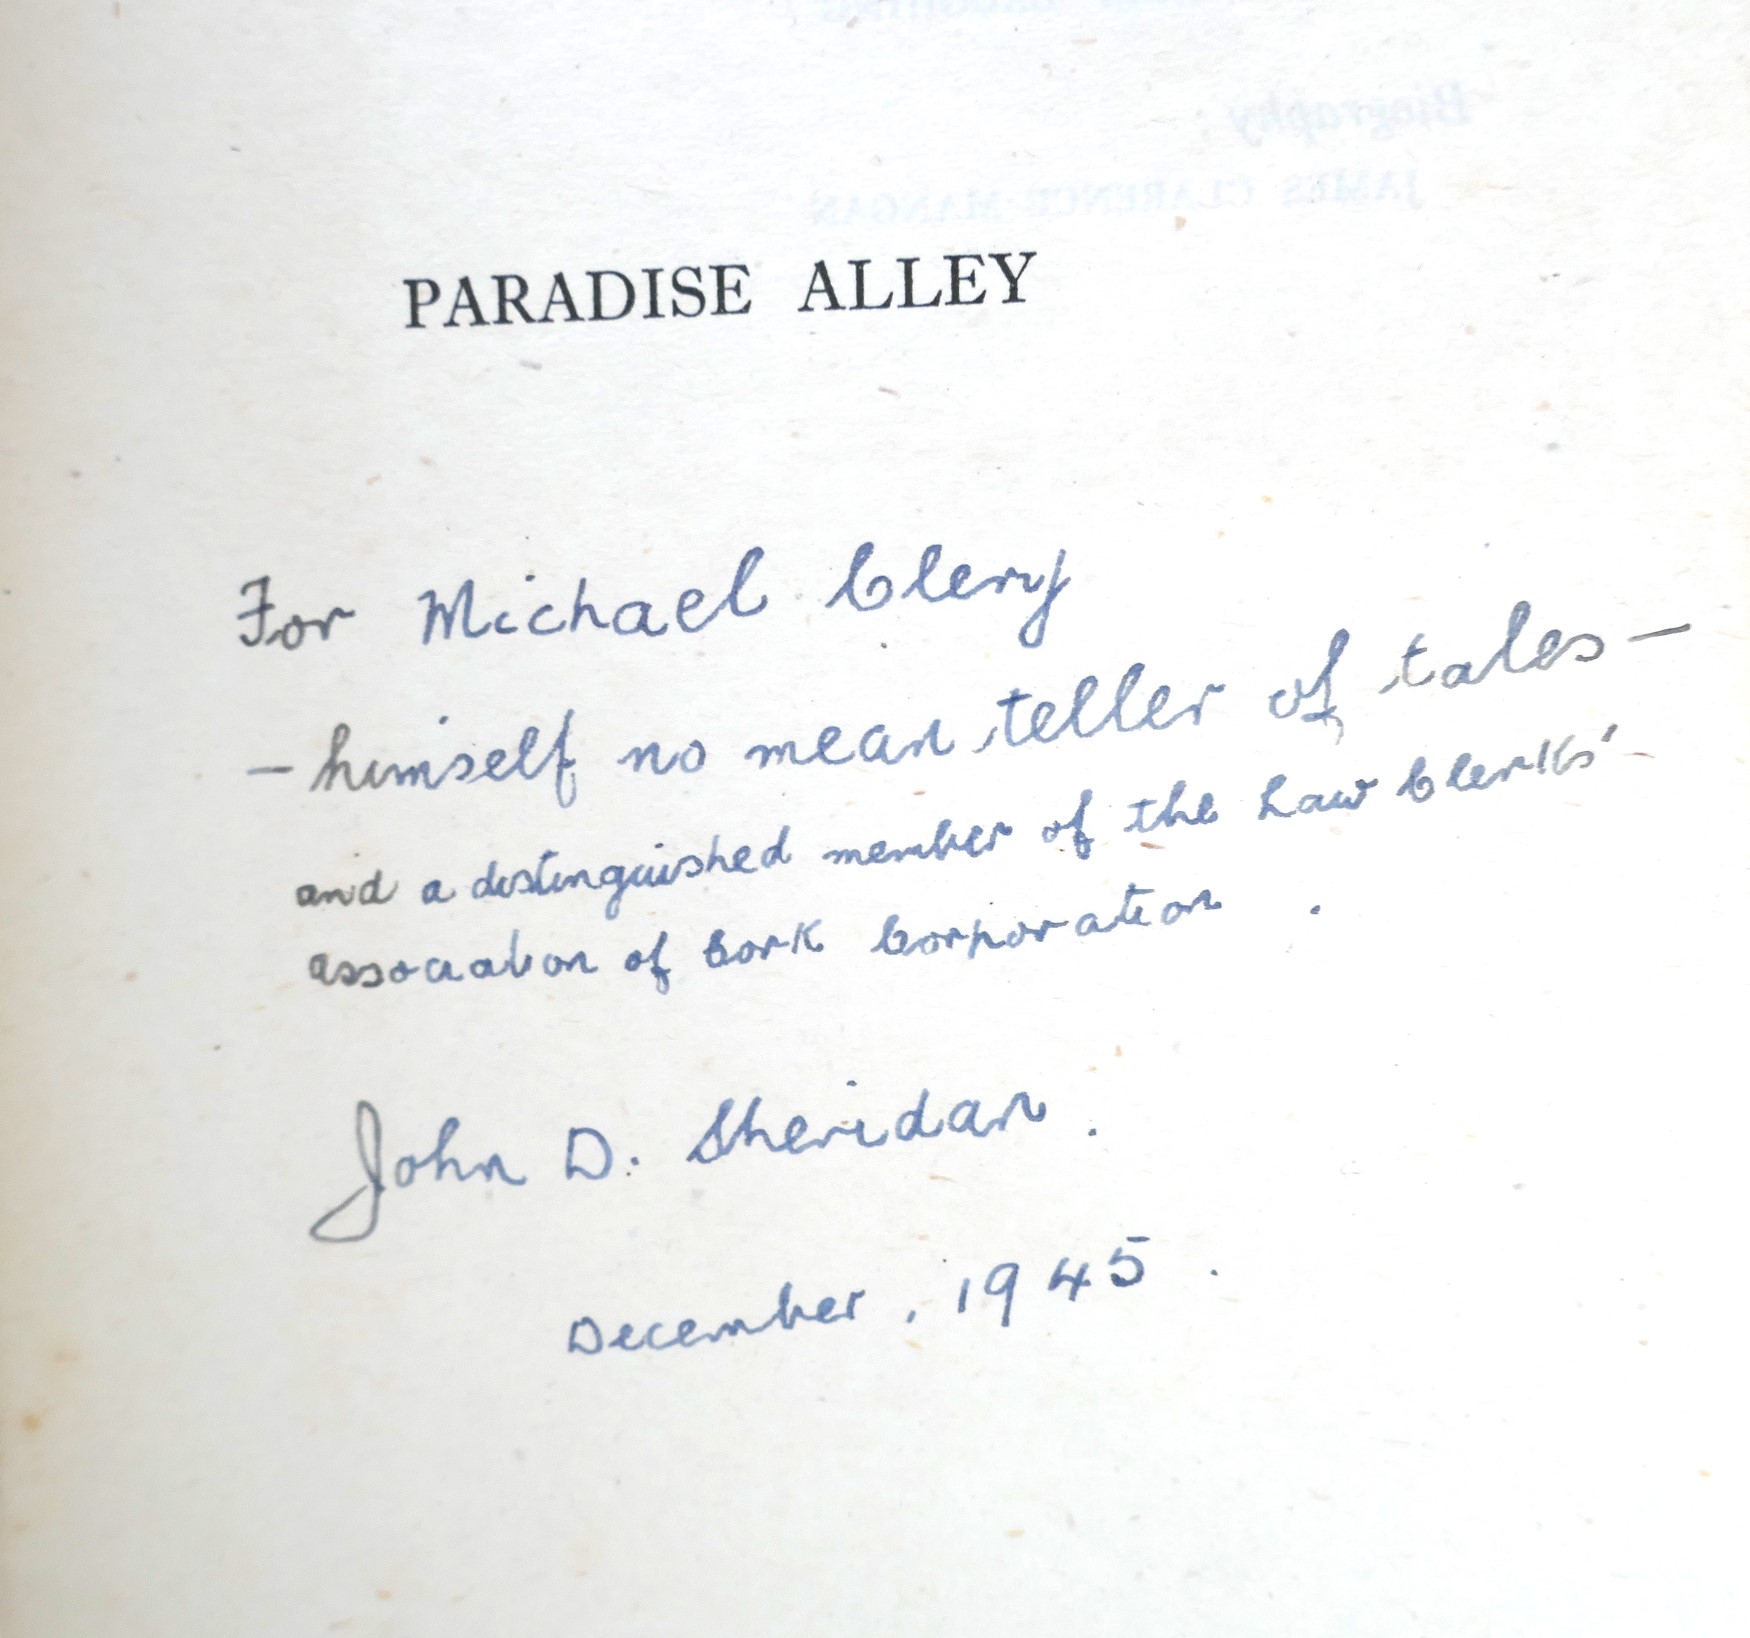 Biography:
JAMES CLARENCE MANGAN
PARADISE ALLEY
For Michael Clery
– himself no mean teller of tales –
and a distinguished member of the Law Clerks'
association of Cork Corporation .
John D. Sheridan.
December, 1945.